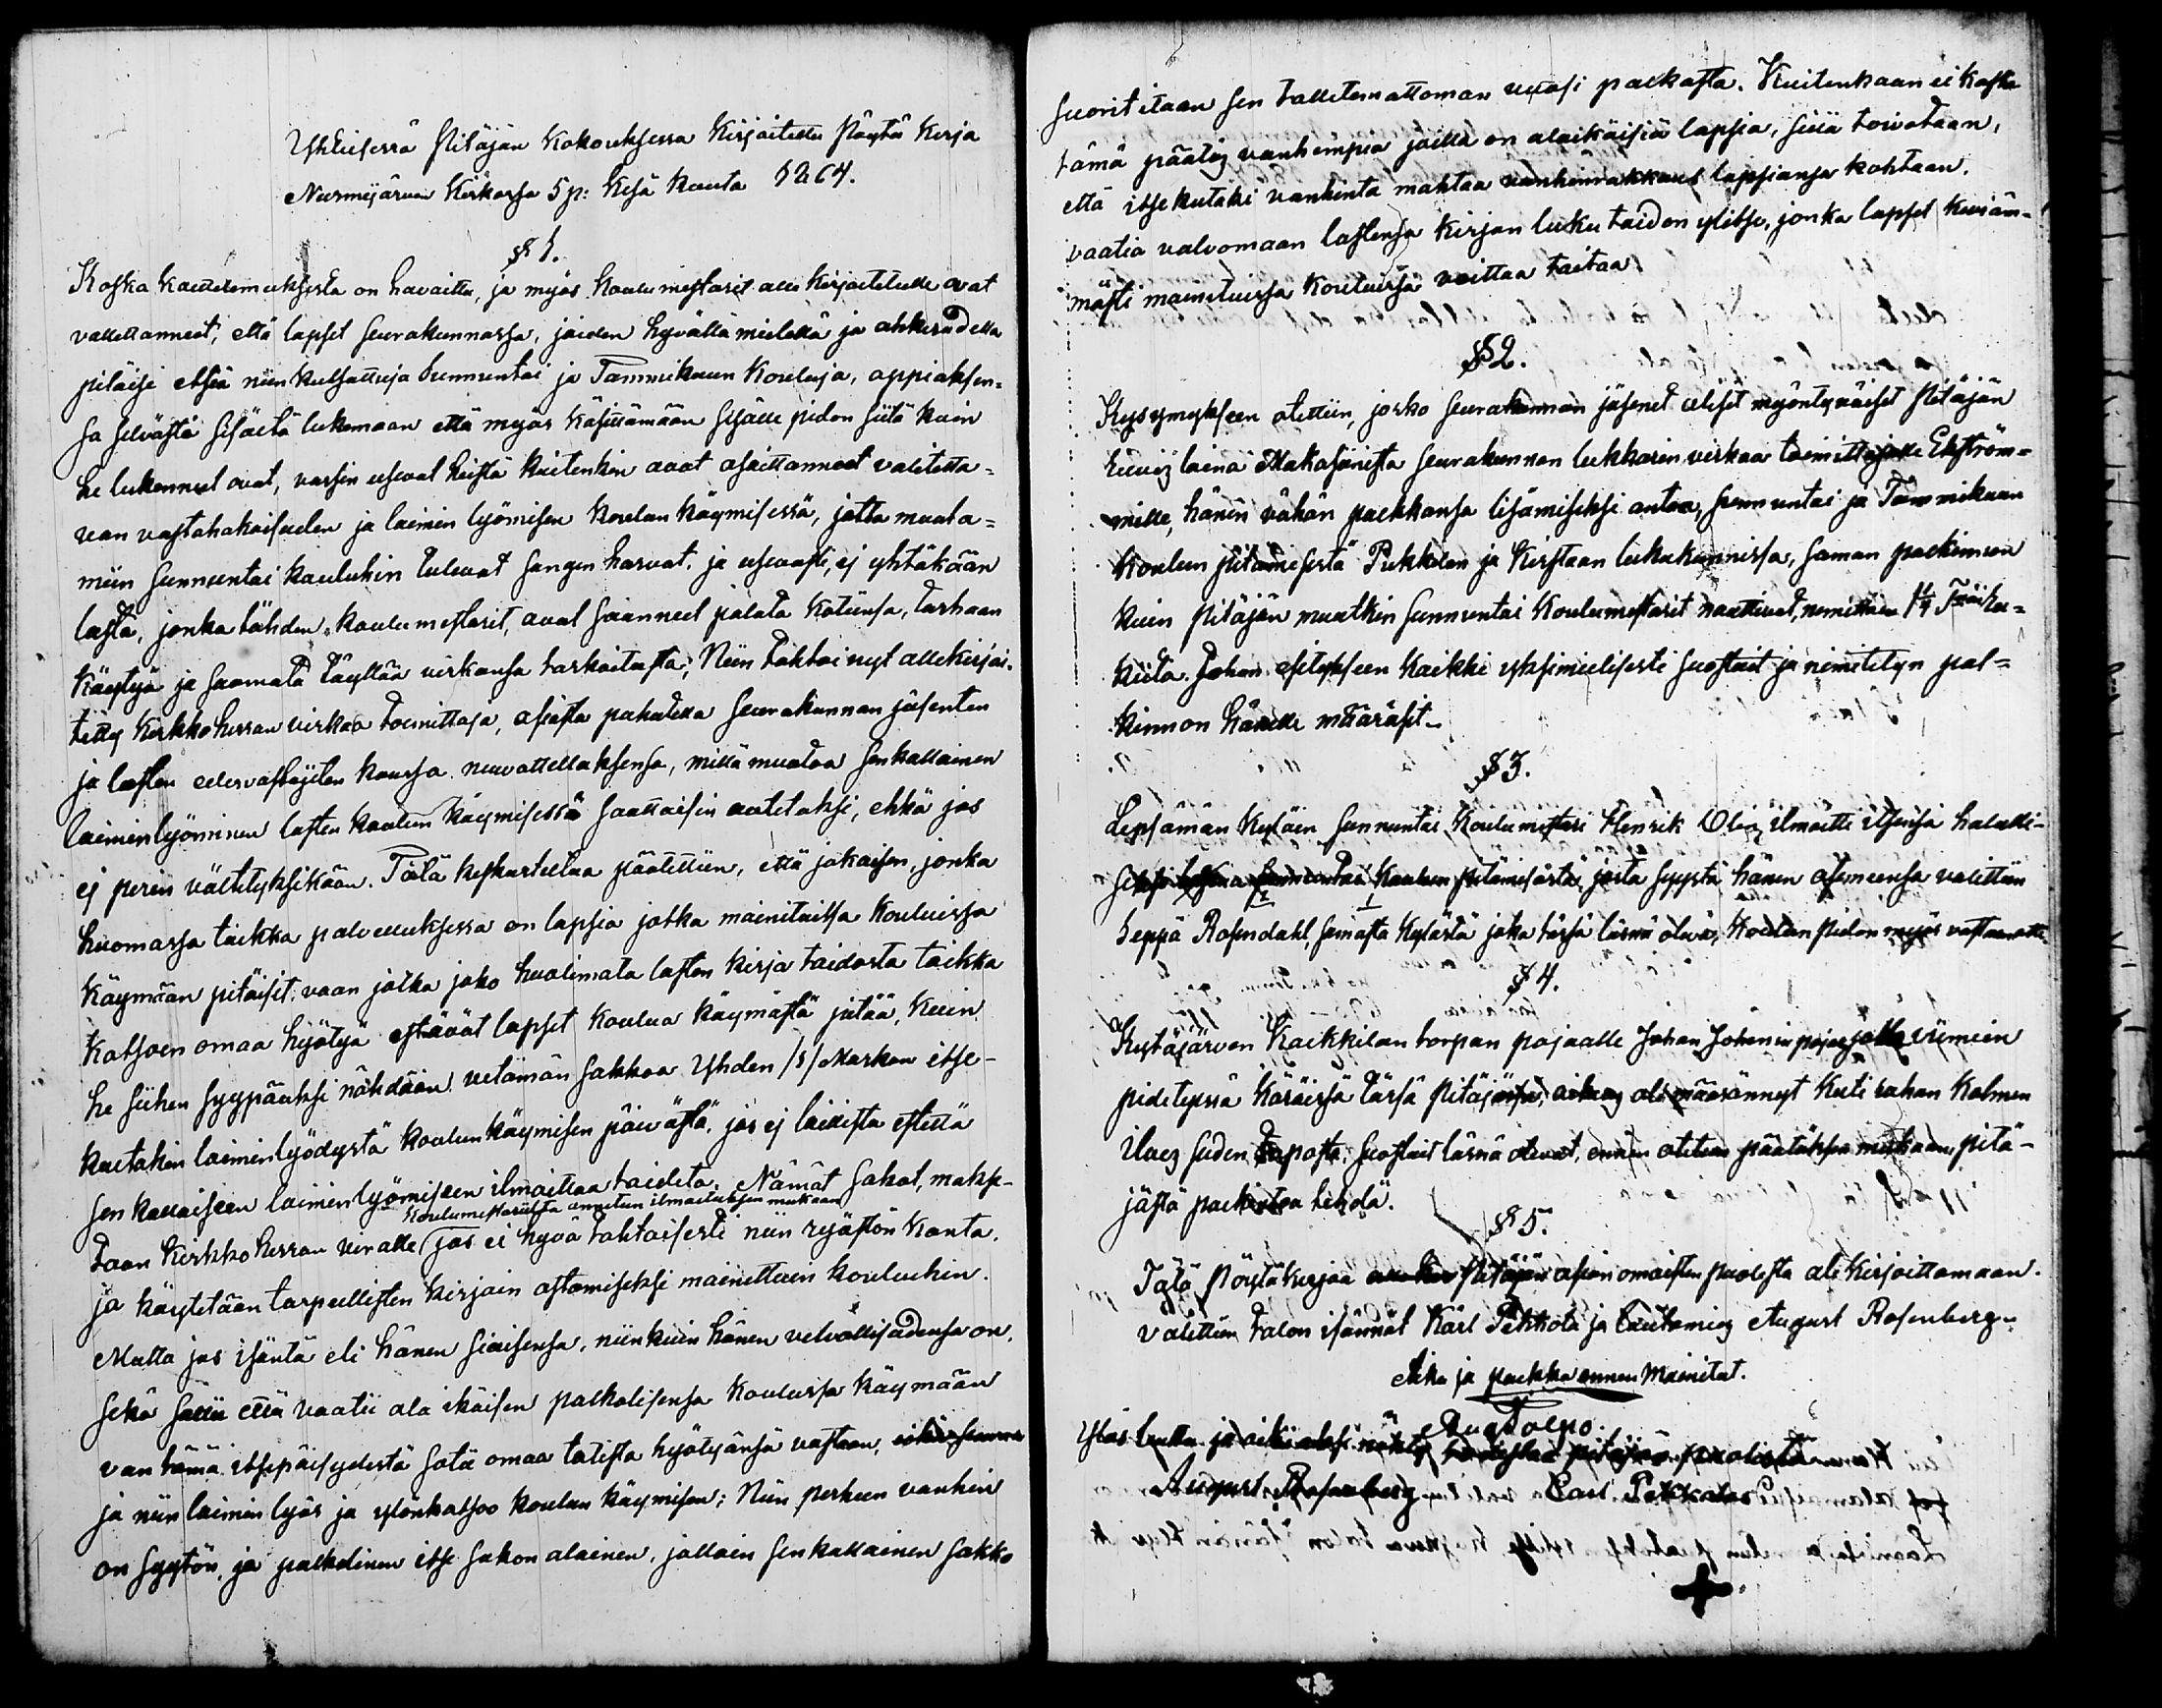 Yhteisessä Pitäjän Kokouksessa Kirjoitettu Pöytä Kirja
Nurmijärven Kirkossa 5 p: Kesä Kuuta 1864.
§ 1.
Koska kauttelemuksesta on havaittu, ja myös Koulumestarit alle kirjoitetulle ovat
valittanneet, että lapset seurakunnassa, joiden hyvällä mielellä ja ahkeruudella
pitäisi etsiä niin kutsuttuja sunnuntai ja Tammikuun Kouluja, oppiaksen-
sa selvästi sisältä lukemaan että myös käsittämään sisälle pidon siitä kuin
he lukenneet ovat, varsin usiat heistä kuitenkin ovat osoittanneet valitetta-
van vastahakoisuden ja laimin lyömisen koulun käymisessä, jotta muuta-
miin sunnuntai kouluhin tulevat sangen harvat, ja usiasti, ej yhtäkään
lasta, jonka tähden koulumestarit, ovat saanneet palata kotiinsa, turhaan
käytyä ja saamata täyttää virkansa tarkoitusta; Niin tahtoi nyt allekirjoi-
tettu Kirkkoherran virkaa toimittaja, asiasta puhutella Seurakunnan jäsenten
ja lasten edesvastajiten kanssa neuvottellaksensa, millä muutoa senkallainen
laiminlyöminen lasten koulun käymisessä saattaisin autetuksi, ehkä jos
ej perin vältetyksikään. Tätä keskusteltua päätettiin, että jokaisen, jonka
huomassa taikka palveluksessa on lapsia jotka mainituissa Kouluissa
käymään pitäisit, vaan jotka joko huolimata lasten kirja taidosta taikka
katsoen omaa hyötyä estävät lapset koulua käymästä pitää, kuin
he siihen syypääksi nähdään vetämän sakkoa yhden /1/ Markan itse-
kutakin laiminlyödystä koulun käymisen päivästä, jos ej laillista estettä
sen kallaiseen laimin lyömiseen ilmoittaa taideta. Nämät Sakot, makse-
Koulumestariilta annetun ilmoituksen mukaan
taan Kirkko herran viralle (jos ei hyvä tahtoisesti niin ryöstön kanta,
ja käytetään tarpeellisten kirjain ostamiseksi mainittuin kouluhin.
Mutta jos isäntä eli hänen siaisensa, niinkuin hänen velvollisudensa on,
sekä sallii että vaatii ala ikäisen palkolisensa koulussa käymään
van tämä itsepäisydestä sotii omaa totista hyötyänsä vastaan,
ja niin laimin lyös ja ylönkatsoo koulun käymisen; Niin perheen vanhin
on syytön, ja palkolinen itse sakon alainen, jolloin senkallainen sakko
suoritetaan sen tallitemattoman vuosi palkasta. Kuitenkaan ei koske
tämä päätös vanhempia joilla on alaikäisiä lapsia, siitä toivotaan,
että itse kutaki vanhinta mahtaa vanhinrakkaus lapsiansa kohtaan,
vaatia valvomaan lastensa kirjan luku taidon ylitse, jonka lapset kuiäm-
mästi mainituissa kouluissa voittaa taitaa.
§ 2.
Kysymykseen otettiin, josko seurakunnan jäsenet olisit myöntyväiset Pitäjän
laina Makasinista seurakunnan lukkarin virkaa toimittajalle Ekström-
mille, hänen vähän palkkansa lisämiseksi antaa, sunnuntai ja Tammikuun
koulun pitämisestä Pukkilan ja Kirstaan lukukunnissa, saman palkinnon
kuin Pitäjän muutkin sunnuntai Koulumestarit nauttivat, nimittäin 1¼
kiita. Tohon esityksen kaikki yksimielisesti suostuit ja nimitetyn pal-
kinnon hänelle määräsit.
§ 3.
Lepsämän Kyläin sunnuntai Koulumestari Henrik ilmoitti itsensä halulli-
seksi luopua sunnuntai koulun pitämisestä, josta syystä hänen asemeensa valittiin
Seppä Rosendahl samasta kylästä joka tässä läsnä oleva, koulun pidon myös vastaanotti.
§ 4.
Kytäjärven Kaikkilan torpan pojaalle Johan Johanin viimein
pidetyssä käräissä tässä Pitäjässä, oikeus oli määrännyt kuti rahan kolmen
ilves suden taposta, suostuit läsnä olevat, ennen otetun päätöksen mukaan, pitä-
jästä palkintoa tehdä.
§ 5.
Tätä Pöytäkirjaa Pitäjän asian omaisten puolesta ali kirjoittamaan.
valittiin talon isännät Karl Pekkola ja lautamies August Rosenberg.
Aika ja paikka ennen Mainitut.
Ylös luettu ja oikiaksi nähty, todistaa pitäjän puolesta
August Rosenberg Carl Pekkola